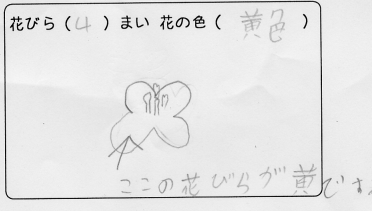 花びら（4）まい 花の色（黄色）
ここの花びらが黄です。